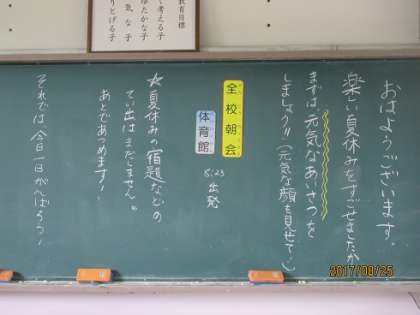 教育目標
く考える子
ゆたかな子
気な子
りとげる子
おはようございます。
楽しい夏休みをすごせましたか
まずは元気なあいさつを
しましょう!!(元気な顔も見せて!)
全校朝会
体育館
8:23
出発
☆夏休みの宿題などの
てい出はまだしません。
あとであつめます！
それでは今日一日がんばろう！
2017/08/25